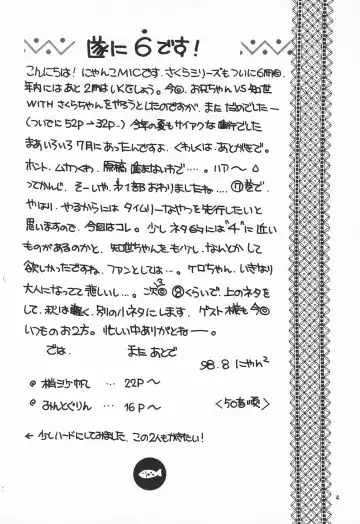 遂に6です!
こんにちは! にゃんこMICです. さくらシリーズもついに6冊目.
年内にはあと2冊はいくでしょう。今回、お兄ちゃんVS知世
WITHさくらちゃんをやろうとしたのですが、まただめでしたー
(ついでに52P→32P…) 今年の夏もサイアクな進行でした
まあいろいろ7月にあったんですよ. くわしくは、あとがきで。
ホント、ムカつくわ、原稿進まないわで・・・・。ハア〜
ってかんじ、そーいや、ネ1部おわりましたね・・・・⑰巻で。
やはり、やるからにはタイムリーなやつを先行したいと
思いますので、今回はコレ。少しネタ的には"4"に近い
ものがあるのかと、知世ちゃんをもう少し、なんとかして
欲しいかったですね、ファンとしては…。ケロちゃん、いきなり
大人になってて悲しいし…。次回⑧くらいで、上のネタを
して、秋は軽く、別の小ネタにします。ゲスト様も今回
いつものお2方。忙しい中ありがとねー。
では、またあとで
98.8 にゃん²
@梢ヶ枝 … 22P〜
@みんとぐりん … 16P〜 〈50音順〉
←少しハードにしてみました、この2人もかきたい!
4